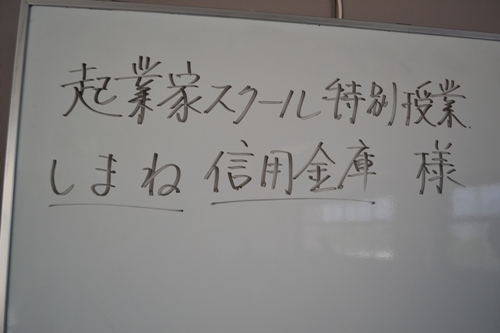 起業家スクール特別授業
しまね 信用金庫 様